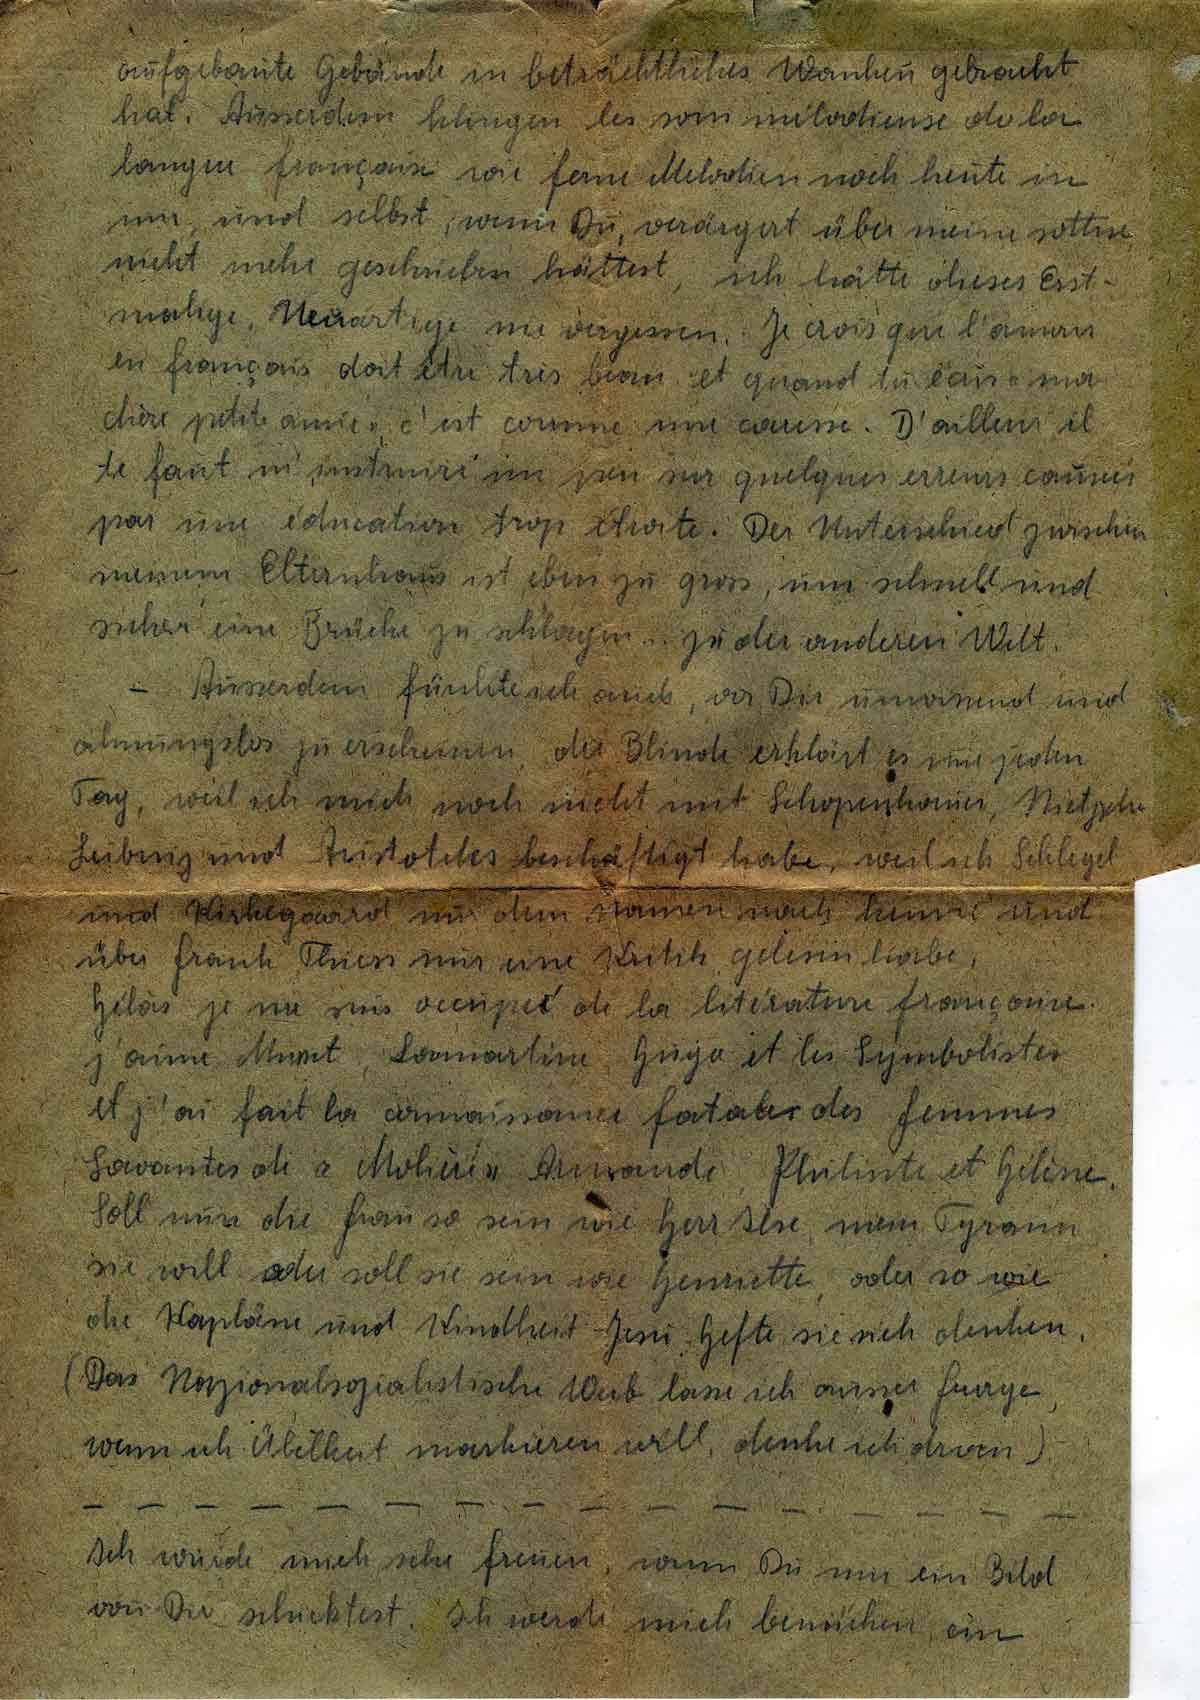 aufgebaute Gebäude in beträchtliches Wanken gebracht
hat. Ausserdem klingen les sons mélodieuse de la
langue française wie ferne Melodien noch heute in
mir, und selbst, wenn Du, verärgert über meine sottise
nicht mehr geschrieben hättest, ich hätte dieses Erst-
malige, Neuartige nie vergessen. Je crois que l'amour
en français doit être très beau et quand tu écris « ma
chère petite amie », c'est comme une caresse. D'ailleurs il
te faut m'instruire un peu sur quelques erreurs causées
par une éducation trop étroite. Der Unterschied zwischen
meinem Elternhaus ist eben zu gross, um schnell und
sicher eine Brücke zu schlagen .. zu der anderen Welt.
– Ausserdem fürchte ich auch, vor Dir unwissend und
ahnungslos zu erscheinen, die Blinde erklärt es mir jeden
Tag, weil ich mich noch nicht mit Schopenhauer, Nietzsche
Leibniz und Aristoteles beschäftigt habe, weil ich Schlegel
und Kirkegaard nur dem Namen nach kenne und
über Frank Thiess nur eine Kritik gelesen habe.
Hélas je me suis occupée de la litérature française.
j'aime Musset, Lamartine Hugo et les Symbolistes
et j'ai fait la connaissance fatale des femmes
Savantes de « Molière » Armande, Philinte et Hélène.
Soll nun die Frau so sein wie Herr Ilse, mein Tyrann
sie will oder soll sie sein wie Henriette, oder so wie
die Kapläne und Kindheit Jesu Hefte sie sich denken.
(Das Nazionalsozialistische Weib lasse ich ausser Frage,
wenn ich Übelkeit markieren will, denke ich dran)
– – – – – – – – – – – – –
Ich würde mich sehr freuen, wenn Du mir ein Bild
von Dir schicktest. Ich werde mich bemühen, ein